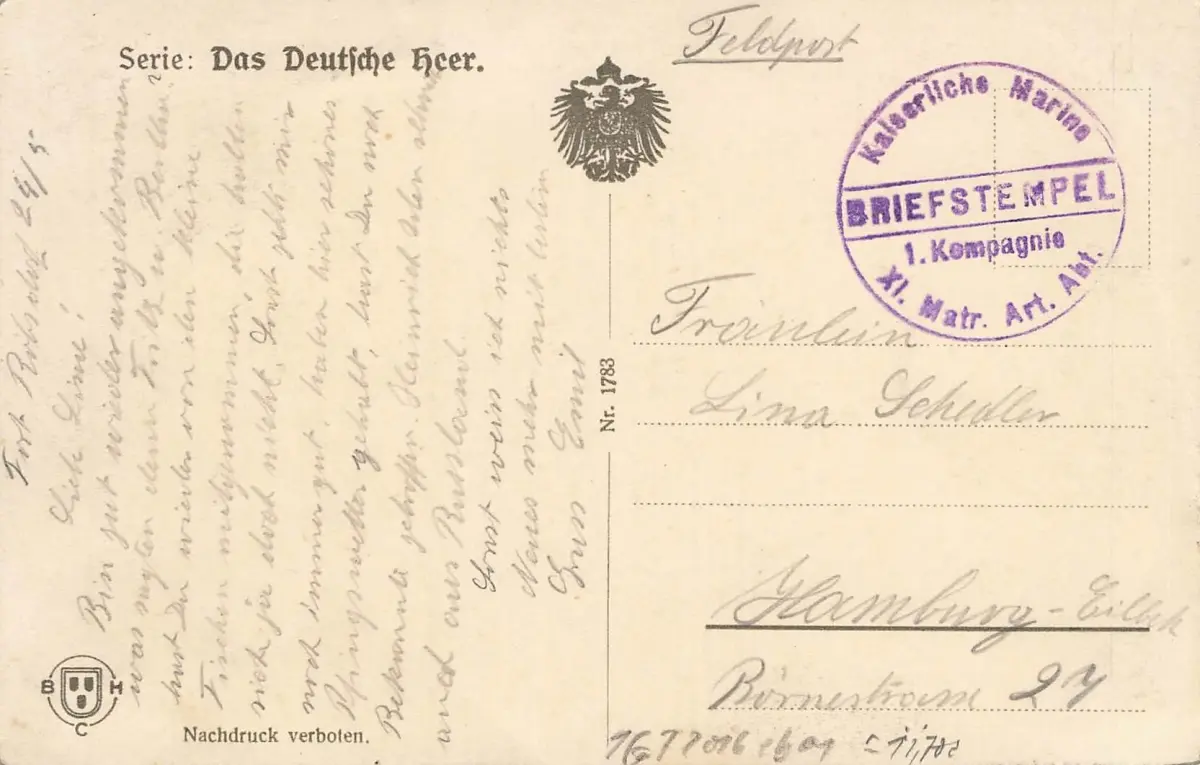 Serie: Das Deutsche Heer.
Feldpost
Kaiserliche Marine
BRIEFSTEMPEL
1. Kompagnie
XI. Matr. Art. Abt.
Nr. 1783
Fräulein
Lina Schedler
Hamburg-Eilbek
Börnestrasse 27
Fort 24/5
Bin gut wieder angekommen
was sagten denn Fritz u
hast Du wieder von den kleine
Fischen mitgenommen, die halten
sich ja doch nicht. Sonst geht's mir
noch immer gut, haben hier schönes
Pfingswetter gehabt, hast Du noch
Bekannte getroffen. Heinrich
und aus Russland.
Sonst weiss ich nichts
Neues mehr mitteilen
Gruss Emil
B H
C
Nachdruck verboten.